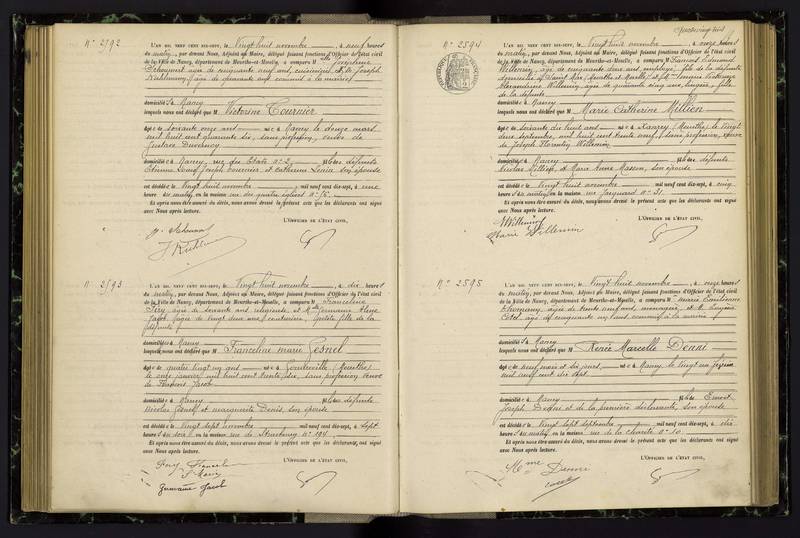 N° 2592
L'AN MIL NEUF CENT DIX-SEPT, le Vingt huit novembre, à neuf heures
du matin, par devant Nous, Adjoint au Maire, délégué faisant fonctions d'Officier de l'état civil
de la Ville de Nancy, département de Meurthe-et-Moselle, a comparu M Joséphine
âgée de cinquante neuf ans, cuisinière, et M Joseph
âgé de quarante ans commis à la mairie
domicilié s à Nancy
lesquels nous ont déclaré que M Victorine Tournier
âgé e de soixante onze ans né e à Nancy le douze mars
mil huit cent quarante six, sans profession, veuve de
Gustave
domicilié e à Nancy, rue des États n° 2, fille des défunts
Étienne Louis Joseph Tournier et Catherine Louis son épouse
est décédé e le Vingt huit novembre mil neuf cent dix-sept, à une
heure du matin, en la maison rue des quatre églises n°
Et après nous être assuré du décès, nous avons dressé le présent acte que les déclarants ont signé
avec Nous après lecture.
L'OFFICIER DE L'ÉTAT CIVIL,
N° 2593
L'AN MIL NEUF CENT DIX-SEPT, le Vingt huit novembre, à dix heures
du matin, par devant Nous, Adjoint au Maire, délégué faisant fonctions d'Officier de l'état civil
de la Ville de Nancy, département de Meurthe-et-Moselle, a comparu M Franceline
âgée de soixante ans religieuse, et M Germaine
Jacob âgée de vingt deux ans, couturière, petite fille de la
défunte
domicilié s à Nancy
lesquels nous ont déclaré que M Franceline Marie Gesnel
âgé e de quatre vingt un ans né e à (Meurthe)
le onze janvier mil huit cent trente six, sans profession veuve
de François Jacob
domicilié e à Nancy fille des défunts
Nicolas Gesnel et Marguerite Denis, son épouse
est décédé e le Vingt sept novembre mil neuf cent dix-sept, à sept
heures du soir, en la maison rue de Strasbourg n° 194
Et après nous être assuré du décès, nous avons dressé le présent acte que les déclarants ont signé
avec Nous après lecture.
L'OFFICIER DE L'ÉTAT CIVIL,
Germaine Jacob
N° 2594
L'AN MIL NEUF CENT DIX-SEPT, le Vingt huit novembre, à onze heures
du matin, par devant Nous, Adjoint au Maire, délégué faisant fonctions d'Officier de l'état civil
de la Ville de Nancy, département de Meurthe-et-Moselle, a comparu M François Edmond
Willemin, âgé de cinquante deux ans, employé, fils de la défunte
domicilié à (Meurthe et Moselle) et M
Alexandrine Willemin, âgée de quarante cinq ans, lingère, fille
de la défunte
domicilié à Nancy
lesquels nous ont déclaré que M Marie Catherine Million
âgé e de soixante dix huit ans né e à Xanrey (Meurthe) le vingt
deux septembre mil huit cent trente neuf, sans profession, veuve
de Joseph Florentin Willemin
domicilié e à Nancy fille des défunts
Nicolas Million et Marie Anne Masson, son épouse
est décédé e le Vingt huit novembre mil neuf cent dix-sept, à cinq
heures du matin, en la maison rue Jacquard n° 31
Et après nous être assuré du décès, nous avons dressé le présent acte que les déclarants ont signé
avec Nous après lecture.
L'OFFICIER DE L'ÉTAT CIVIL,
Willemin
Marie Willemin
N° 2595
L'AN MIL NEUF CENT DIX-SEPT, le Vingt huit novembre, à onze heures
du matin, par devant Nous, Adjoint au Maire, délégué faisant fonctions d'Officier de l'état civil
de la Ville de Nancy, département de Meurthe-et-Moselle, a comparu M Marie
âgée de trente neuf ans, ménagère, et M
âgé de cinquante un ans commis à la mairie
domicilié s à Nancy
lesquels nous ont déclaré que M Renée Marcelle Denni
âgé e de neuf mois et six jours, né e à Nancy le vingt un
mil neuf cent dix sept
domicilié e à Nancy fille de Ernest
Joseph et de la première déclarante, son épouse
est décédé e le Vingt sept mil neuf cent dix-sept, à dix
heures du matin, en la maison rue de la charité n° 10
Et après nous être assuré du décès, nous avons dressé le présent acte que les déclarants ont signé
avec Nous après lecture.
L'OFFICIER DE L'ÉTAT CIVIL,
Mme Denni